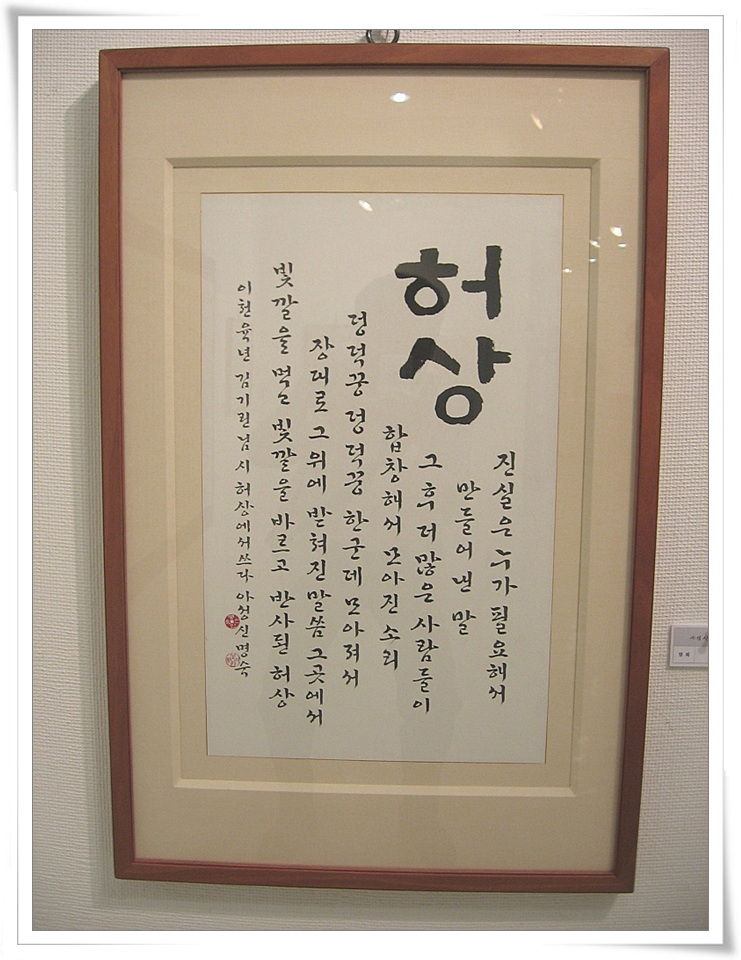 허상
진실은 누가 필요해서
만들어 낸 말
그 후 더 많은 사람들이
합창해서 모아진 소리
덩덕꿍 덩덕꿍 한군데 모아져서
장대로 그 위에 받혀진 말씀 그곳에서
빛깔을 먹고 빛깔을 바르고 반사된 허상
이천육년 김기린님 시 허상에서 쓰다 아정 신명숙